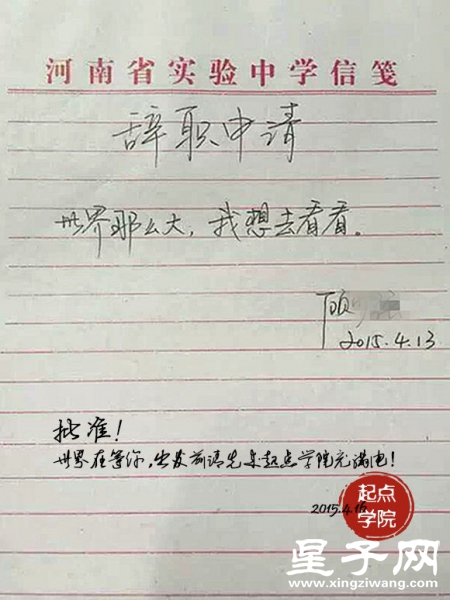 河南省实验中学信笺
辞职申请
世界那么大，我想去看看。
顾
2015.4.13
批准！
世界在等你，出发前请先来起点学院充满电！
2015.4.16
起点
学院
星子网
www.xingziwang.com